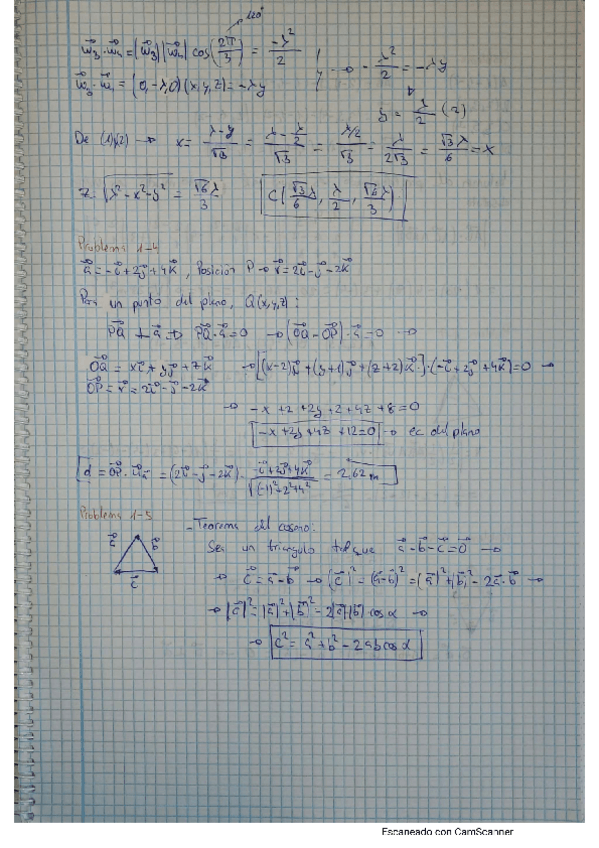 120°
w⃗₃·w⃗₄ = |w⃗₃||w⃗₄| cos(2π/3) = -λ²/2
w⃗₃·w⃗₄ = (0,-λ,0)(x,y,z) = -λy → -λ²/2 = -λy
y = λ/2 (2)
De (1)y(2) → x = (λ-y)/√3 = (λ-λ/2)/√3 = (λ/2)/√3 = λ/(2√3) = √3λ/6 = x
z: √(λ²-x²-y²) = √6λ/3 C(√3λ/6, λ/2, √6λ/3)
Problema 1-4
a⃗ = -i⃗+2j⃗+4k⃗, Posición P → r⃗ = 2i⃗-j⃗-2k⃗
Por un punto del plano, Q(x,y,z):
PQ⃗ ⊥ a⃗ ⇒ PQ⃗·a⃗ = 0 → (OQ⃗-OP⃗)·a⃗ = 0 →
OQ⃗ = xi⃗+yj⃗+zk⃗ → [(x-2)i⃗+(y+1)j⃗+(z+2)k⃗]·(-i⃗+2j⃗+4k⃗) = 0 →
OP⃗ = r⃗ = 2i⃗-j⃗-2k⃗
→ -x+2+2y+2+4z+8=0
-x+2y+4z+12=0 → ec del plano
d = OP⃗·u⃗a = (2i⃗-j⃗-2k⃗)·(-i⃗+2j⃗+4k⃗)/√((-1)²+2²+4²) = 2,62 m
Problema 1-5
- Teorema del coseno:
a⃗ b⃗ c⃗
Sea un triangulo tal que a⃗-b⃗-c⃗=0⃗ →
→ c⃗=a⃗-b⃗ → (c⃗)²=(a⃗-b⃗)²=(a⃗)²+(b⃗)²-2a⃗·b⃗ →
→ |c⃗|²=|a⃗|²+|b⃗|²-2|a⃗||b⃗| cos α →
→ c²=a²+b²-2ab cos α
Escaneado con CamScanner